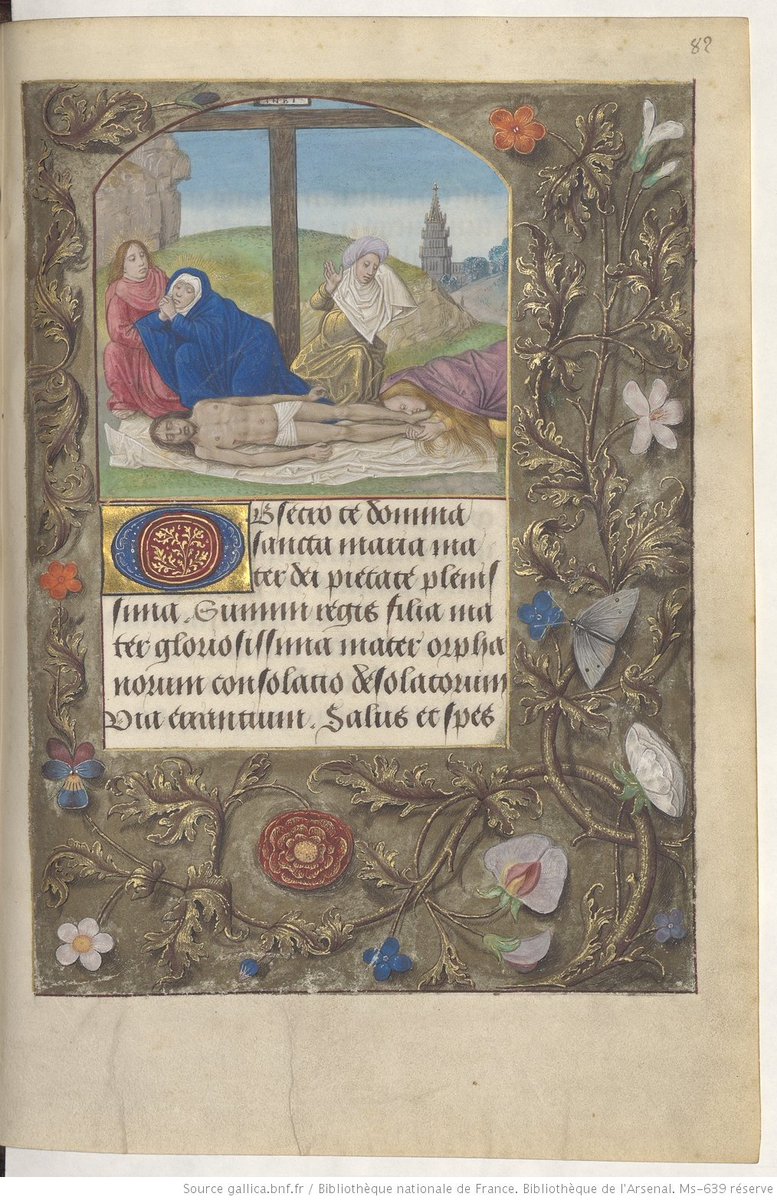 82
INRI
Obsecro te domina
sancta maria ma
ter dei pietate plenis
sima. Summi regis filia ma
ter gloriosissima mater orpha
norum consolatio desolatorum
Via errantium. Salus et spes
Source gallica.bnf.fr / Bibliothèque nationale de France. Bibliothèque de l'Arsenal. Ms-639 réserve